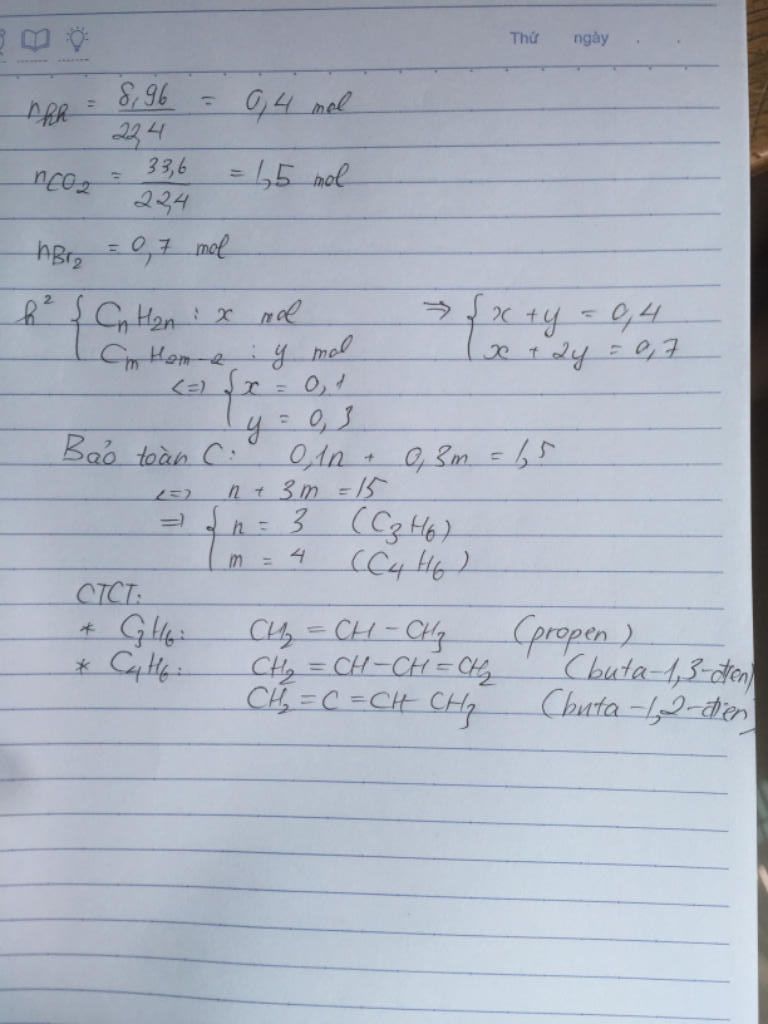 Thứ ngày . .
nhh = 8,96/22,4 = 0,4 mol
nCO2 = 33,6/22,4 = 1,5 mol
nBr2 = 0,7 mol
h² { CnH2n : x mol ⇒ { x + y = 0,4
CmH2m-2 : y mol x + 2y = 0,7
<=> { x = 0,1
y = 0,3
Bảo toàn C: 0,1n + 0,3m = 1,5
<=> n + 3m = 15
=> { n = 3 (C3H6)
m = 4 (C4H6)
CTCT:
* C3H6: CH2 = CH - CH3 (propen)
* C4H6: CH2 = CH - CH = CH2 (buta-1,3-đien)
CH2 = C = CH - CH3 (buta-1,2-đien